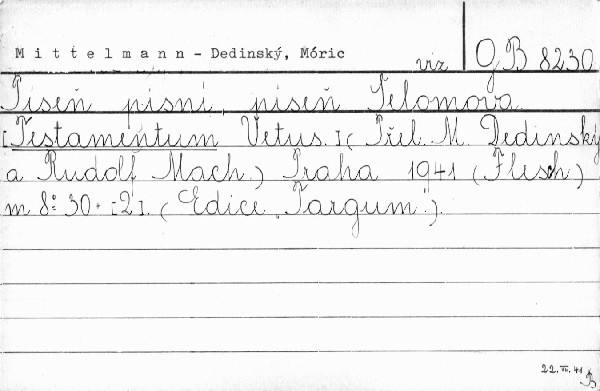 Mittelmann - Dedinský, Móric
viz GB 8230
Píseň písní, píseň Šelomova.
[Testamentum Vetus.] (Přel. M. Dedinský
a Rudolf Mach.) Praha 1941 (Flesch)
m 8° 30 + [2]. (Edice "Targum").
22. VII. 41